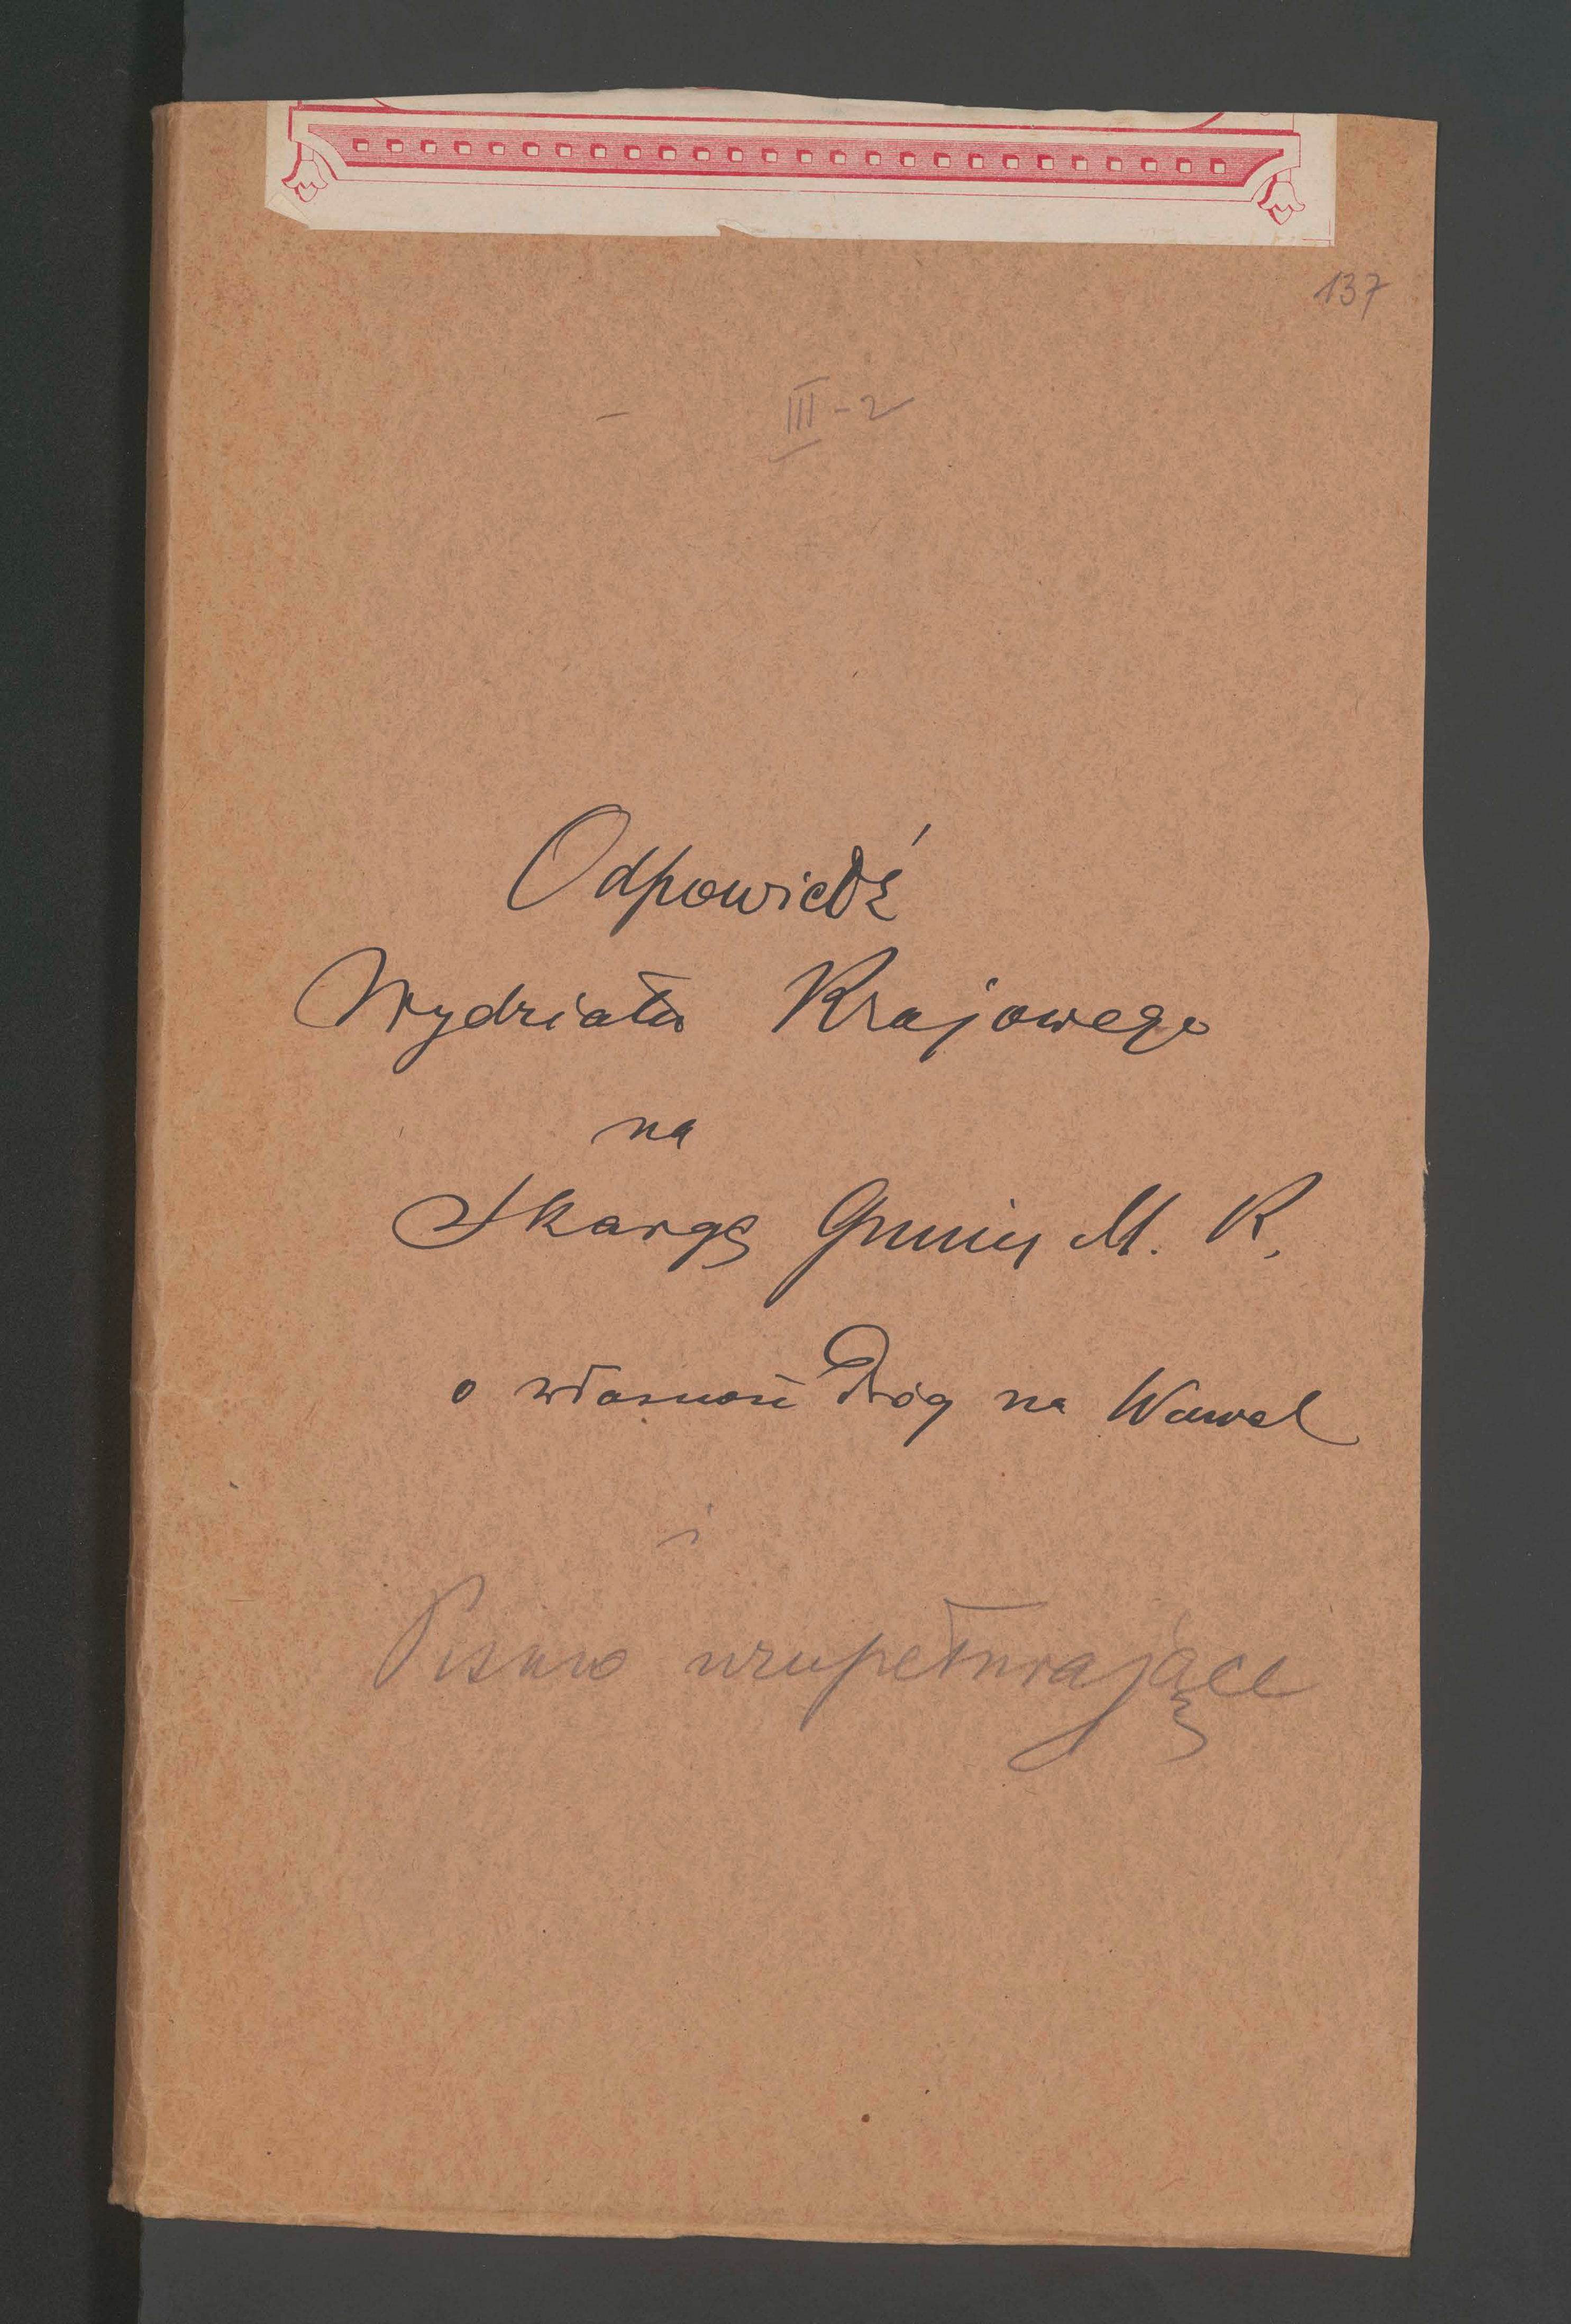 137
III-2
Odpowiedź
Wydziału Krajowego
na
Skargę Gminy M. K.
o własność Dróg na Wawel
i
Pismo uzupełniające